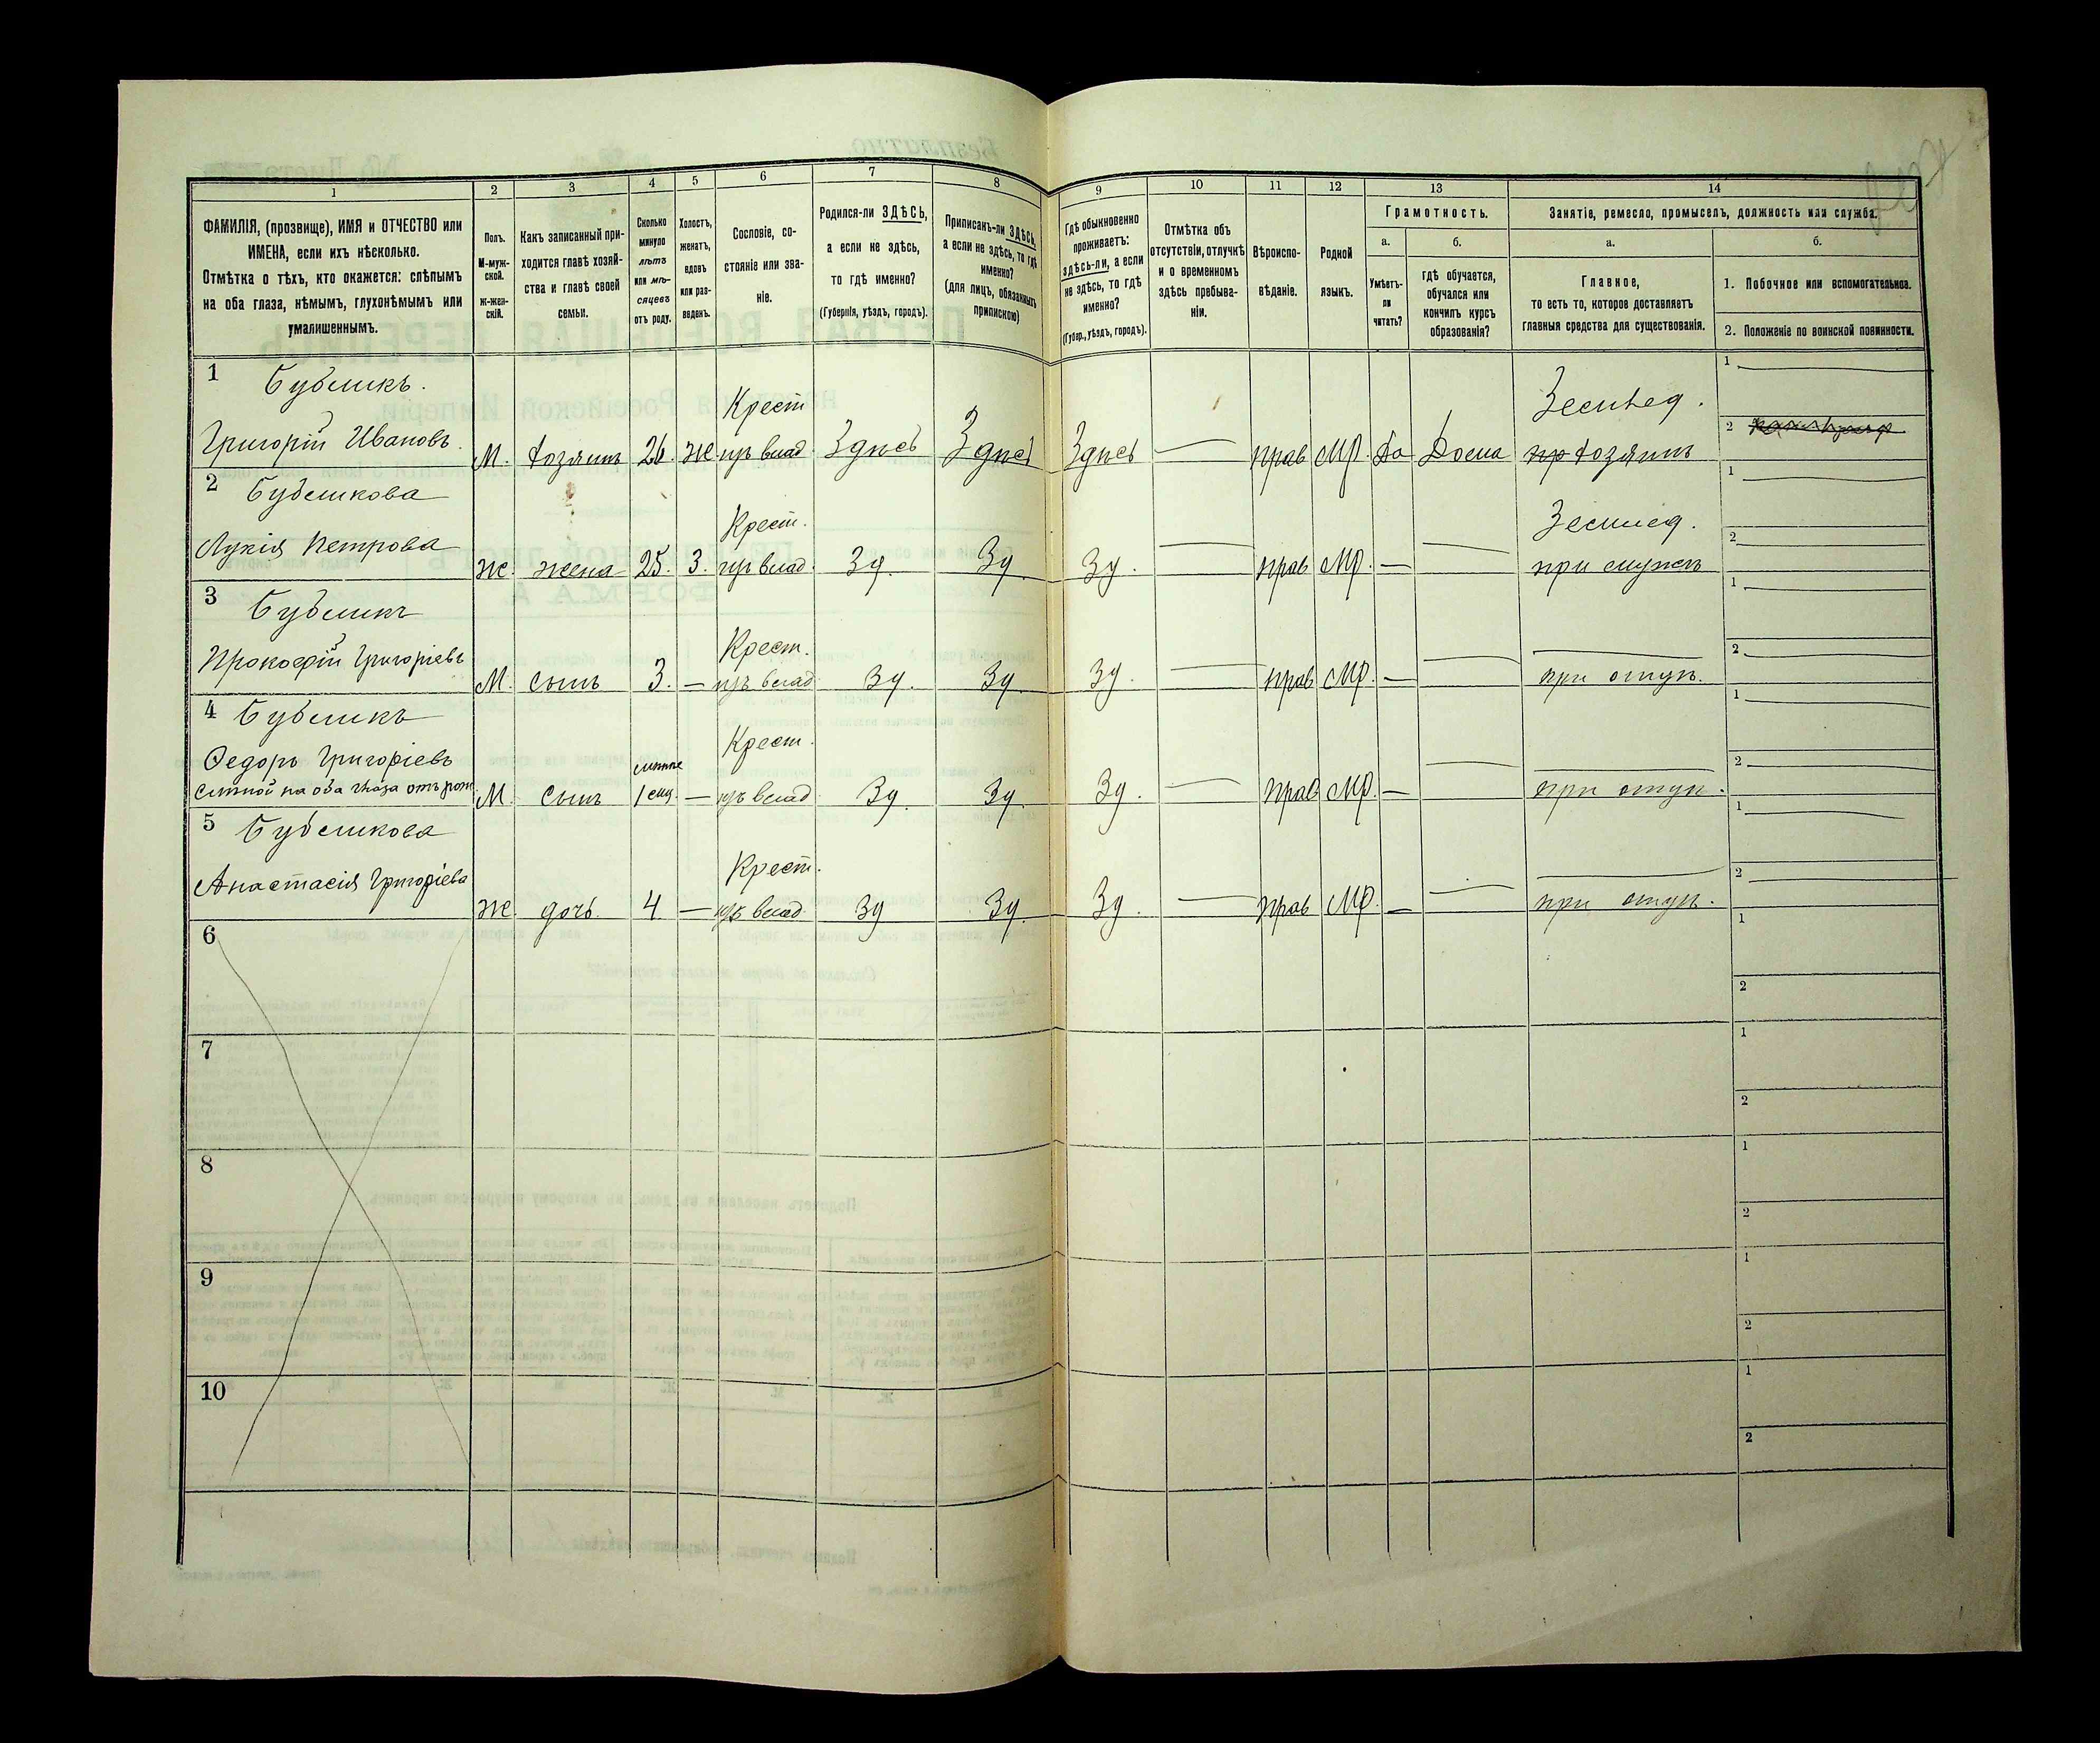 1
2
3
4
5
6
7
8
9
10
11
12
13
14
ФАМИЛІЯ, (прозвище), ИМЯ и ОТЧЕСТВО или
ИМЕНА, если ихъ нѣсколько.
Отмѣтка о тѣхъ, кто окажется: слѣпымъ
на оба глаза, нѣмымъ, глухонѣмымъ или
умалишеннымъ.
Полъ.
М-муж-
ской.
Ж-жен-
скій.
Какъ записанный при-
ходится главѣ хозяй-
ства и главѣ своей
семьи.
Сколько
минуло
лѣтъ
или мѣ-
сяцевъ
отъ роду.
Холостъ,
женатъ,
вдовъ
или раз-
веденъ.
Сословіе, со-
стояніе или зва-
ніе.
Родился-ли ЗДѢСЬ,
а если не здѣсь,
то гдѣ именно?
(Губернія, уѣздъ, городъ).
Приписанъ-ли ЗДѢСЬ,
а если не здѣсь, то гдѣ
именно?
(для лицъ, обязанныхъ
припискою)
Гдѣ обыкновенно
проживаетъ:
здѣсь-ли, а если
не здѣсь, то гдѣ
именно?
(Губер., уѣздъ, городъ).
Отмѣтка объ
отсутствіи, отлучкѣ
и о временномъ
здѣсь пребыва-
ніи.
Вѣроиспо-
вѣданіе.
Родной
языкъ.
Грамотность.
а.
Умѣетъ-
ли
читать?
б.
гдѣ обучается,
обучался или
кончилъ курсъ
образованія?
Занятіе, ремесло, промыселъ, должность или служба.
а.
Главное,
то есть то, которое доставляетъ
главныя средства для существованія.
б.
1. Побочное или вспомогательное.
2. Положеніе по воинской повинности.
1 Бубликъ.
Григорій Ивановъ.
М. хозяинъ 26. Ж Крест
пръ влад. Здѣсь Здѣсь Здѣсь — прав МР. Да Дома Землед.
хозяинъ
1 —
2
2 Бубликова
Лукія Петрова
Ж. жена 25. З. Крест.
пръ влад. Зд. Зд. Зд. — прав МР. — — Землед.
при мужѣ
1 —
2 —
3 Бубликъ
Прокофій Григоріевъ
М. сынъ 3. — Крест.
пръ влад Зд. Зд. Зд. — прав МР. — — при отцѣ.
1 —
2 —
4 Бубликъ
Федоръ Григоріевъ
слѣпой на оба глаза отъ рож.
М. сынъ 1 — Крест.
пръ влад Зд. Зд. Зд. — прав МР. — — при отцѣ.
1 —
2 —
5 Бубликова
Анастасія Григоріева
Ж. дочь. 4. — Крест.
пръ влад. Зд Зд. Зд. — прав МР. — — при отцѣ.
1 —
2 —
6
1
2
7
1
2
8
1
2
9
1
2
10
1
2